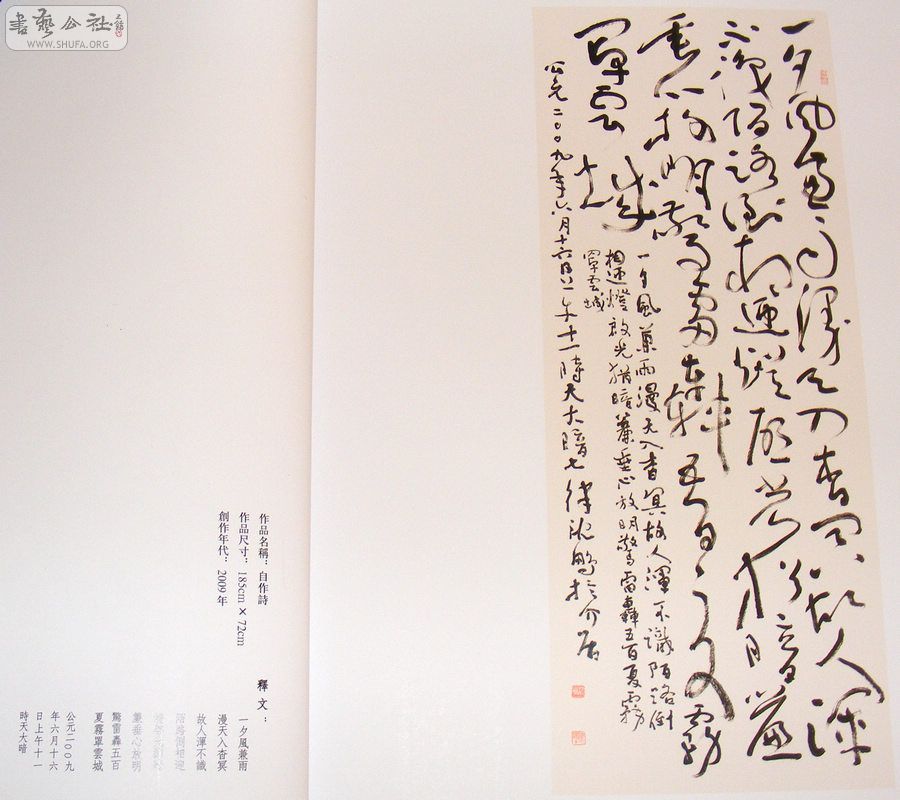 書藝公社
WWW.SHUFA.ORG
一夕風兼雨漫天入杳冥故人渾
不識陌路倒相迎燈啟光猶暗簾
垂心放明驚雷轟五百夏霧
罩雲城
一夕風兼雨漫天入杳冥故人渾不識陌路倒
相迎燈啟光猶暗簾垂心放明驚雷轟五百夏霧
罩雲城
公元二〇〇九年六月十六日上午十一時天大暗
作品名稱：自作詩
作品尺寸：185cm×72cm
創作年代：2009年
釋文：
一夕風兼雨
漫天入杳冥
故人渾不識
陌路倒相迎
簾垂心放明
驚雷轟五百
夏霧罩雲城
公元二〇〇九
年六月十六
日上午十一
時天大暗